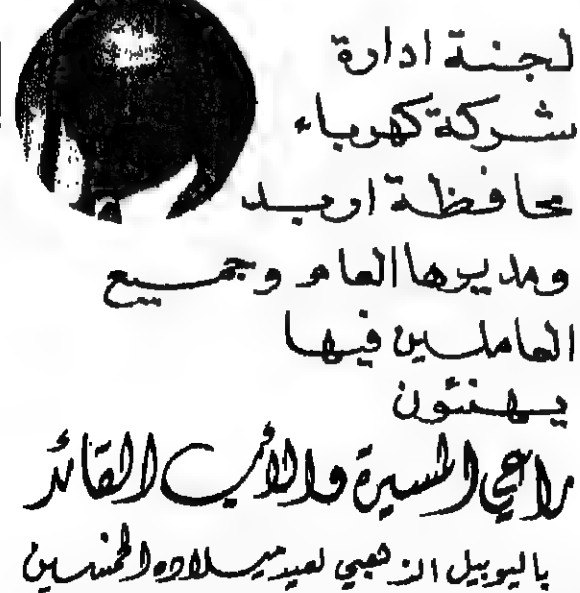 لجنة ادارة
شركة كهرباء
محافظة اربد
ومديرها العام وجميع
العاملين فيها
يهنئون
راعي المسيرة والأب القائد
باليوبيل الذهبي لعيد ميلاده الخمسين